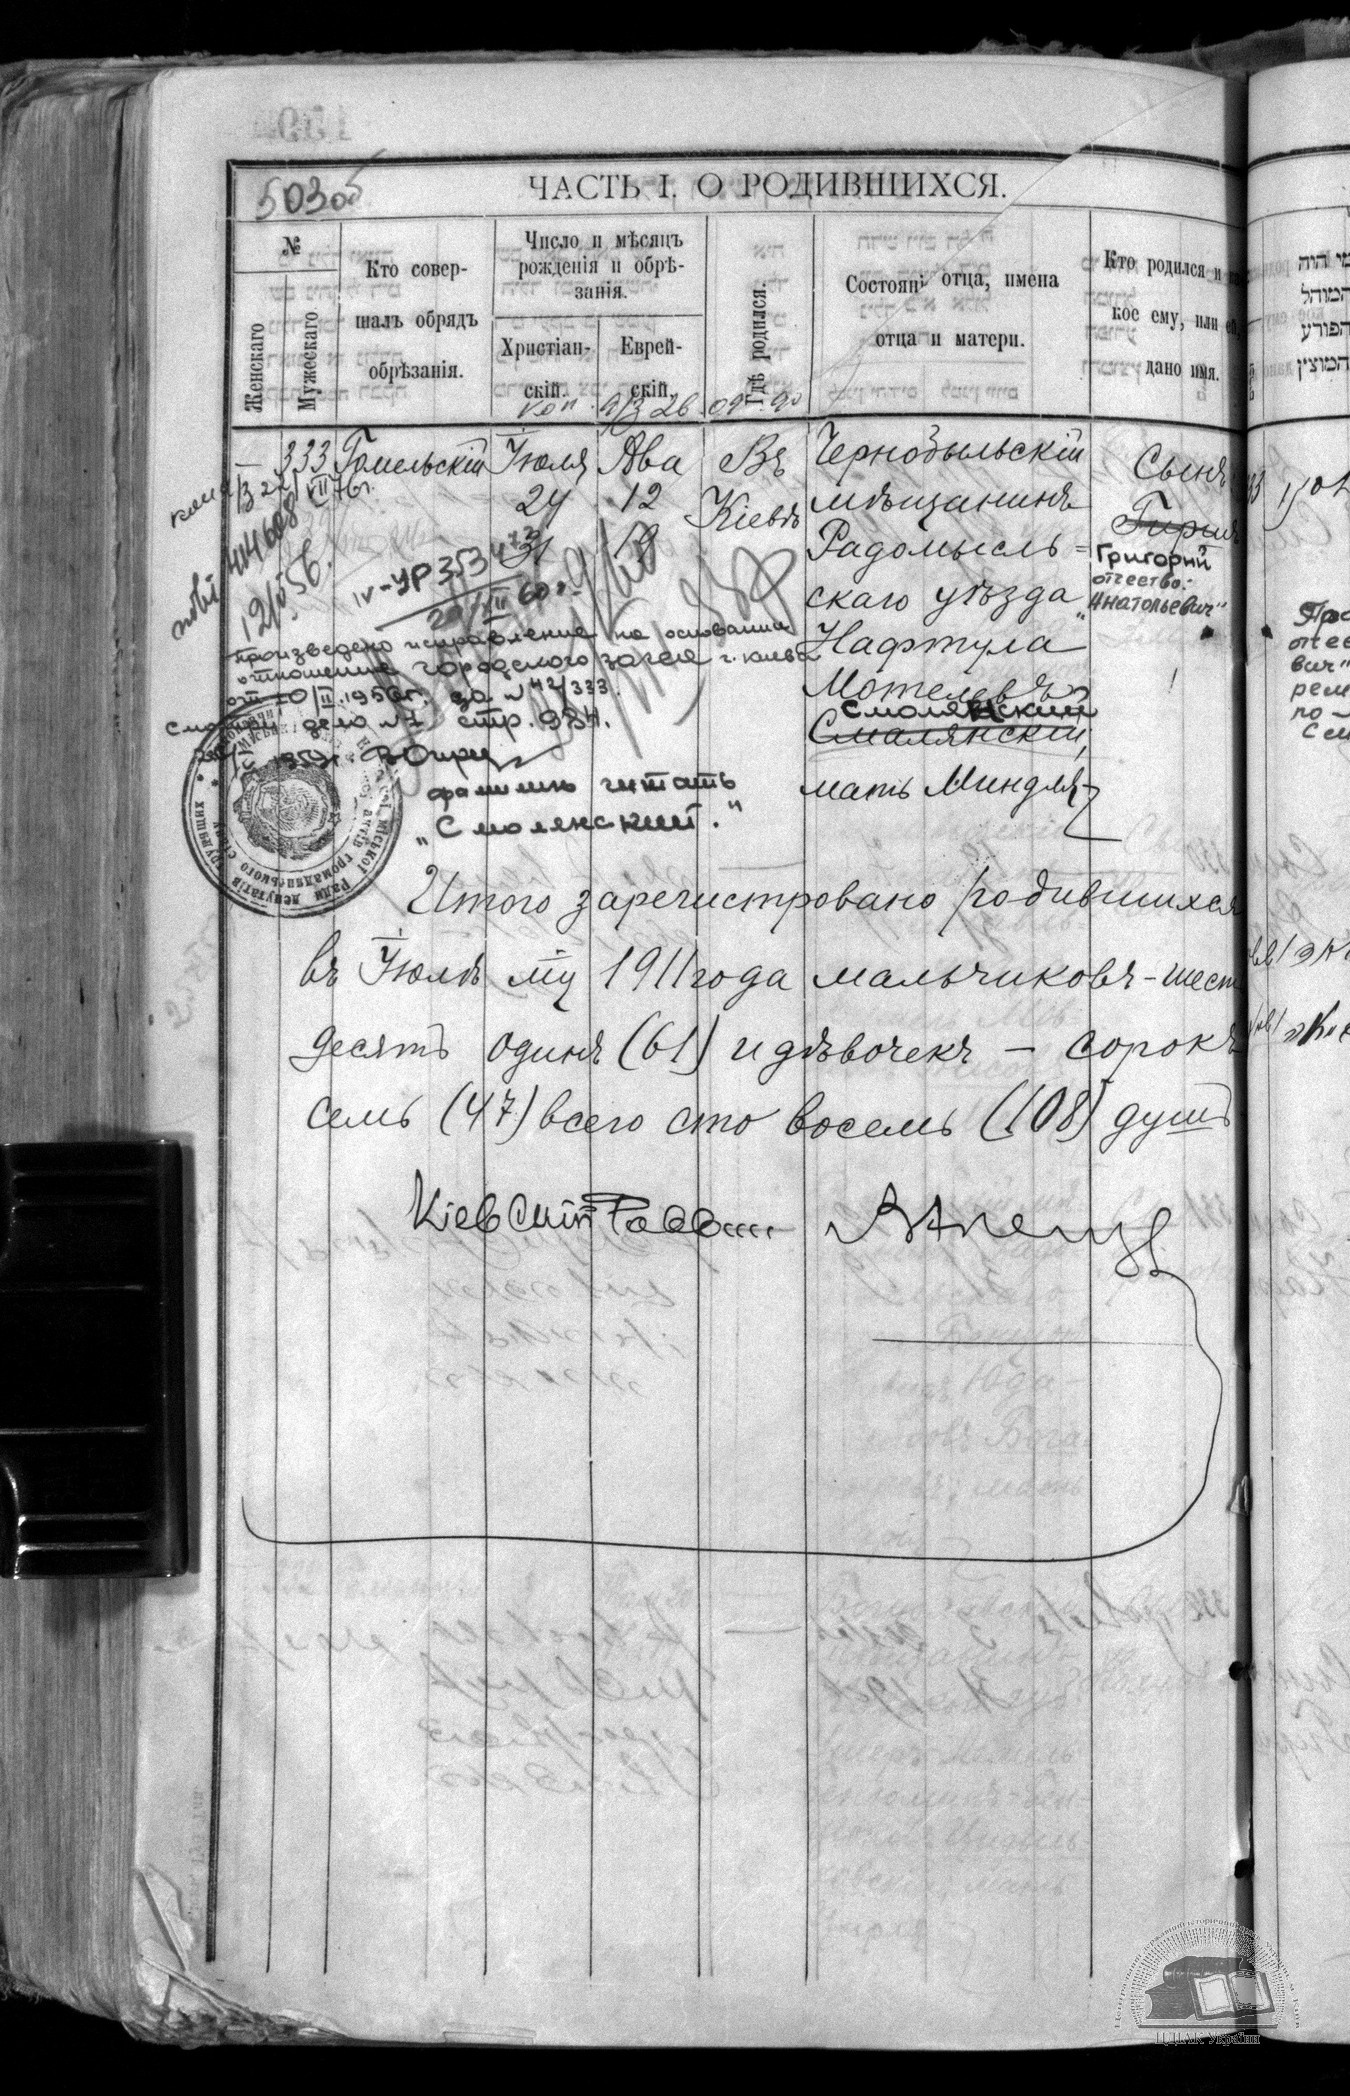 503об
ЧАСТЬ I. О РОДИВШИХСЯ.
№
Женскаго
Мужескаго
Кто совер-
шалъ обрядъ
обрѣзанія.
Число и мѣсяцъ
рожденія и обрѣ-
занія.
Христіан-
скій.
Еврей-
скій.
Гдѣ родился.
Состояні отца, имена
отца и матери.
Кто родился и
кое ему, или ей,
дано имя.
коп 9/3 26
—
333
Гомельскій
Іюля
24
31
Ава
12
19
Въ
Кіевѣ
Чернобыльскій
мѣщанинъ
Радомысль=
скаго уѣзда
Нафтула
Мотелевъ
Смолянский
Смалянскій,
мать Миндля
Сынъ
Гирш
Григорий
отчество:-
"Анатольевич"
414608
12/V 56.
IV-УР 353473
20/VII 60г.
произведено исправление на основании
отношения городского загса г. Киева
от 10/II.1956г. за №42/333.
смотри дело №1 стр. 934.
фамилию читать
"Смолянский."
Итого зарегистровано родившихся
въ Іюлѣ мѣц 1911 года мальчиковъ - шест
десятъ одинъ (61) и дѣвочекъ - сорокъ
семь (47) всего сто восемь (108) душъ
Кіевскій Равв....
ЦДІАК України